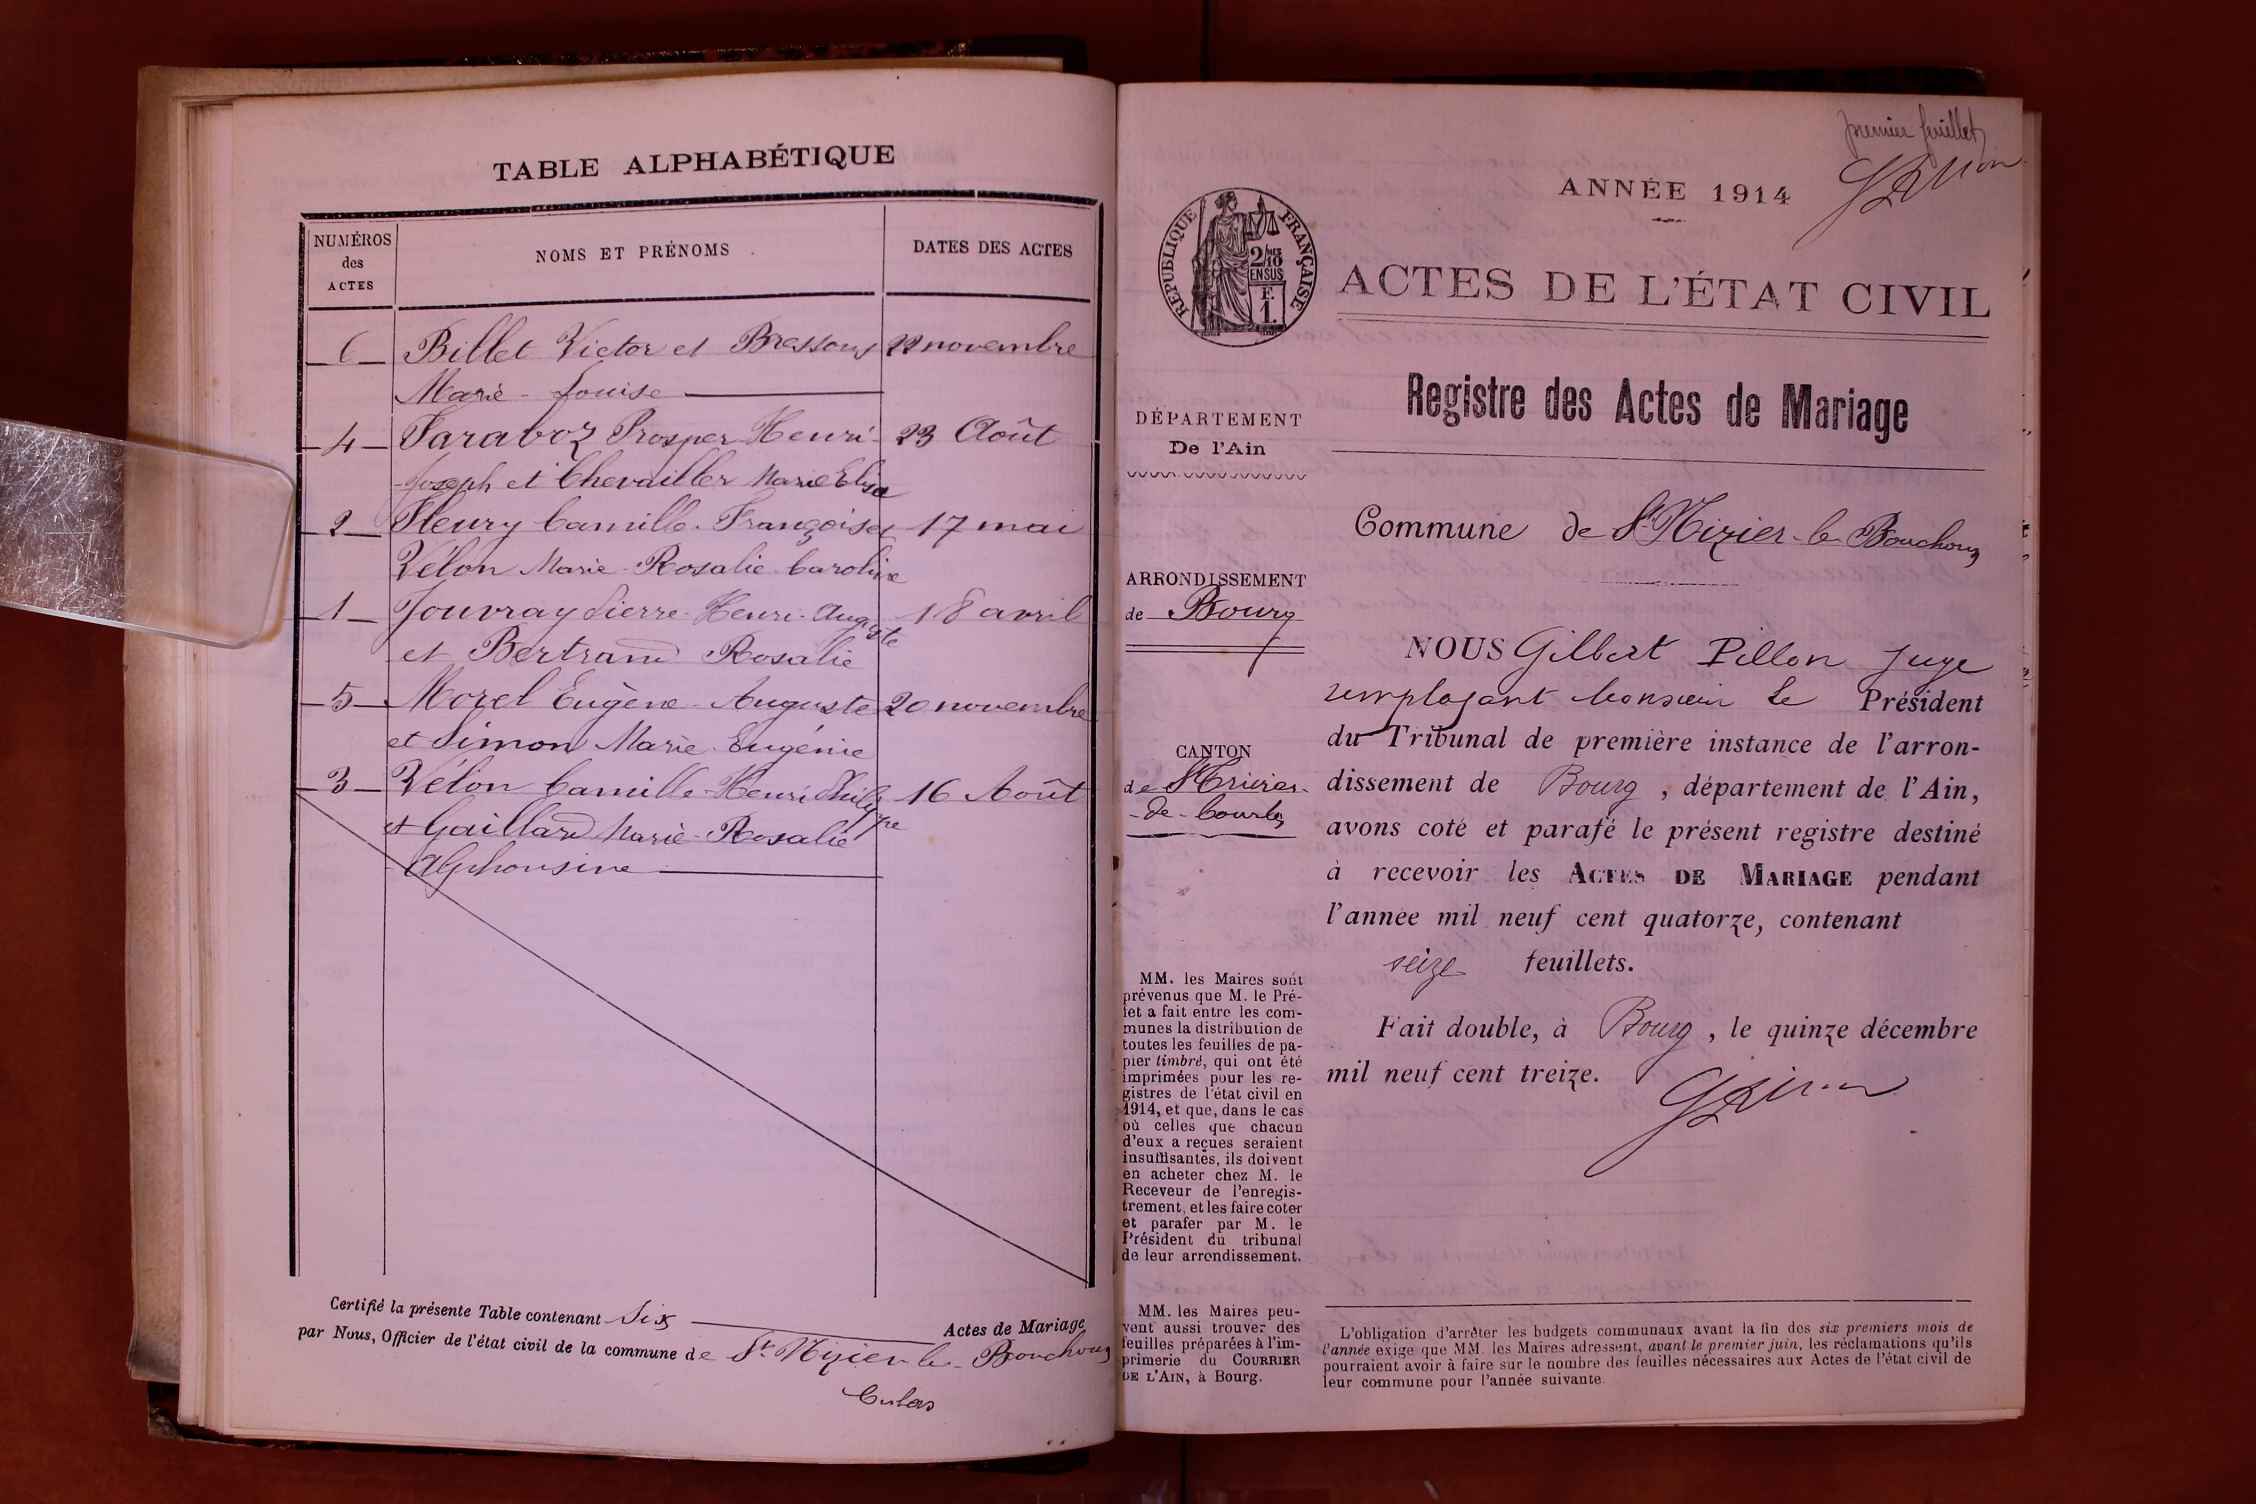 TABLE ALPHABÉTIQUE
NUMÉROS des ACTES
NOMS ET PRÉNOMS
DATES DES ACTES
6 Billet Victor et Bressoux 22 novembre
Marie-Louise
4 Faraboz Prosper-Henri- 23 Août
Joseph et Chevailler Marie Elisa
2 Fleury Camille-François et 17 mai
Vélon Marie-Rosalie Caroline
1 Jouvray Pierre-Henri-Auguste 18 avril
et Bertrand Rosalie
5 Morel Eugène-Auguste 20 novembre
et Simon Marie-Eugénie
3 Vélon Camille-Henri Philippe 16 Août
et Gaillard Marie-Rosalie
Alphonsine
Certifié la présente Table contenant Six Actes de Mariage
par Nous, Officier de l'état civil de la commune de St. Nizier-le-Bouchoux
premier feuillet
ANNÉE 1914
RÉPUBLIQUE FRANÇAISE
2/10
EN SUS
F.
1.
ACTES DE L'ÉTAT CIVIL
Registre des Actes de Mariage
DÉPARTEMENT
De l'Ain
Commune de St Nizier-le-Bouchoux
ARRONDISSEMENT
de Bourg
CANTON
de St Trivier-
-de-Courtes
NOUS Gilbert Pillon Juge
remplaçant Monsieur Le Président
du Tribunal de première instance de l'arron-
dissement de Bourg, département de l'Ain,
avons coté et parafé le présent registre destiné
à recevoir les ACTES DE MARIAGE pendant
l'année mil neuf cent quatorze, contenant
seize feuillets.
Fait double, à Bourg, le quinze décembre
mil neuf cent treize.
MM. les Maires sont
prévenus que M. le Pré-
fet a fait entre les com-
munes la distribution de
toutes les feuilles de pa-
pier timbré, qui ont été
imprimées pour les re-
gistres de l'état civil en
1914, et que, dans le cas
où celles que chacun
d'eux a reçues seraient
insuffisantes, ils doivent
en acheter chez M. le
Receveur de l'enregis-
trement, et les faire coter
et parafer par M. le
Président du tribunal
de leur arrondissement.
MM. les Maires peu-
vent aussi trouver des
feuilles préparées à l'im-
primerie du COURRIER
DE L'AIN, à Bourg.
L'obligation d'arrêter les budgets communaux avant la fin des six premiers mois de
l'année exige que MM. les Maires adressent, avant le premier juin, les réclamations qu'ils
pourraient avoir à faire sur le nombre des feuilles nécessaires aux Actes de l'état civil de
leur commune pour l'année suivante.